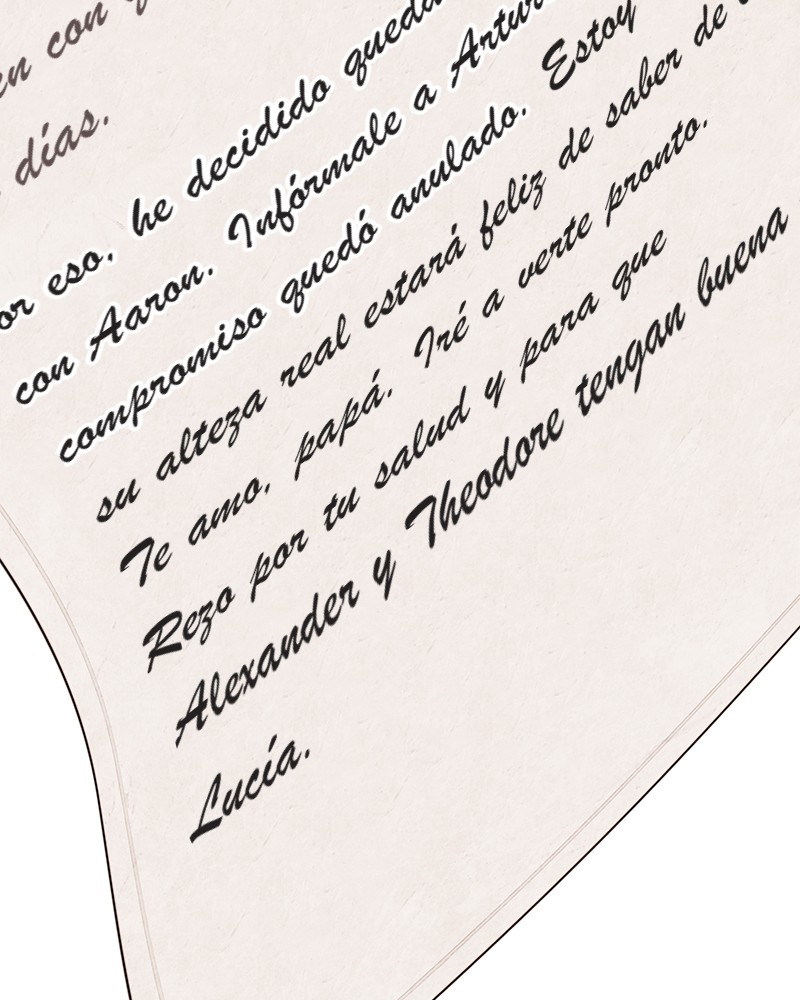 en con
días.
or eso, he decidido queda
con Aaron. Infórmale a Artur
compromiso quedó anulado. Estoy
su alteza real estará feliz de saber de
Te amo, papá. Iré a verte pronto.
Rezo por tu salud y para que
Alexander y Theodore tengan buena
Lucía.